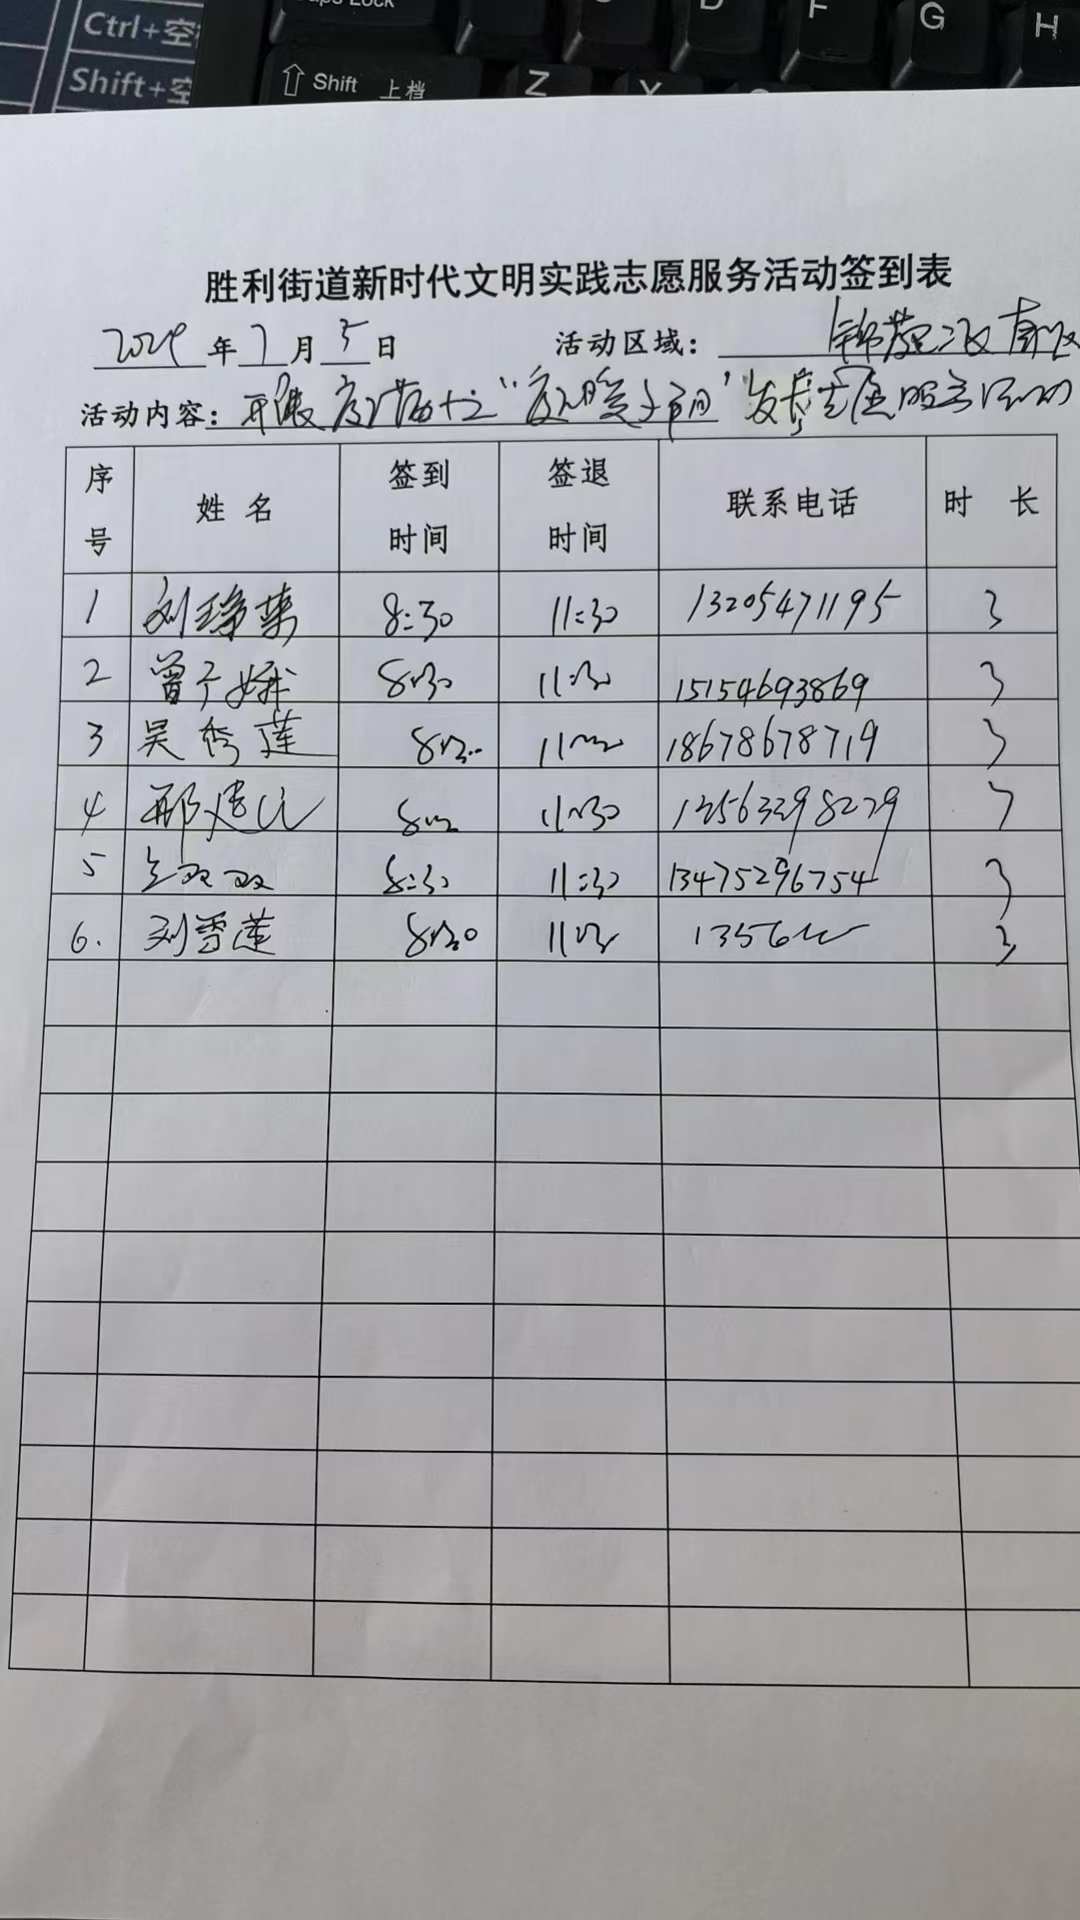 Caps Lock
D F G H
Ctrl+空
Shift 上档 Z
Shift+空
胜利街道新时代文明实践志愿服务活动签到表
年 7 月 5 日 活动区域:
活动内容: 开展 志愿服务活动
序号 姓名 签到时间 签退时间 联系电话 时长
1 刘 8:30 11:30 13205471195 3
2 曾 8:30 11:30 15154693869 3
3 吴秀莲 8:30 11:30 18678678719 3
4 邢建 8:30 11:30 3
5 双双 8:30 11:30 13475296754 3
6. 刘雪莲 8:30 11:30 1356 3